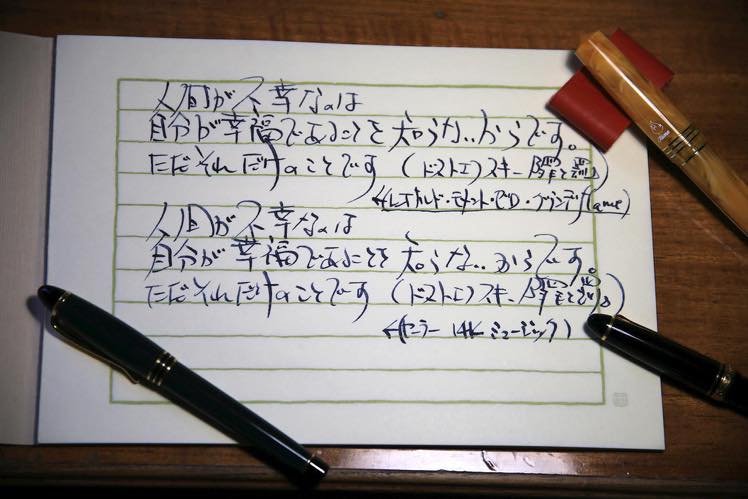 人間が不幸なのは
自分が幸福であることを知らないからです。
ただそれだけのことです (ドストエフスキー
←(レオナルド・
人間が不幸なのは
自分が幸福であることを知らないからです。
ただそれだけのことです (ドストエフスキー
←(セーラー 14K ミュージック)